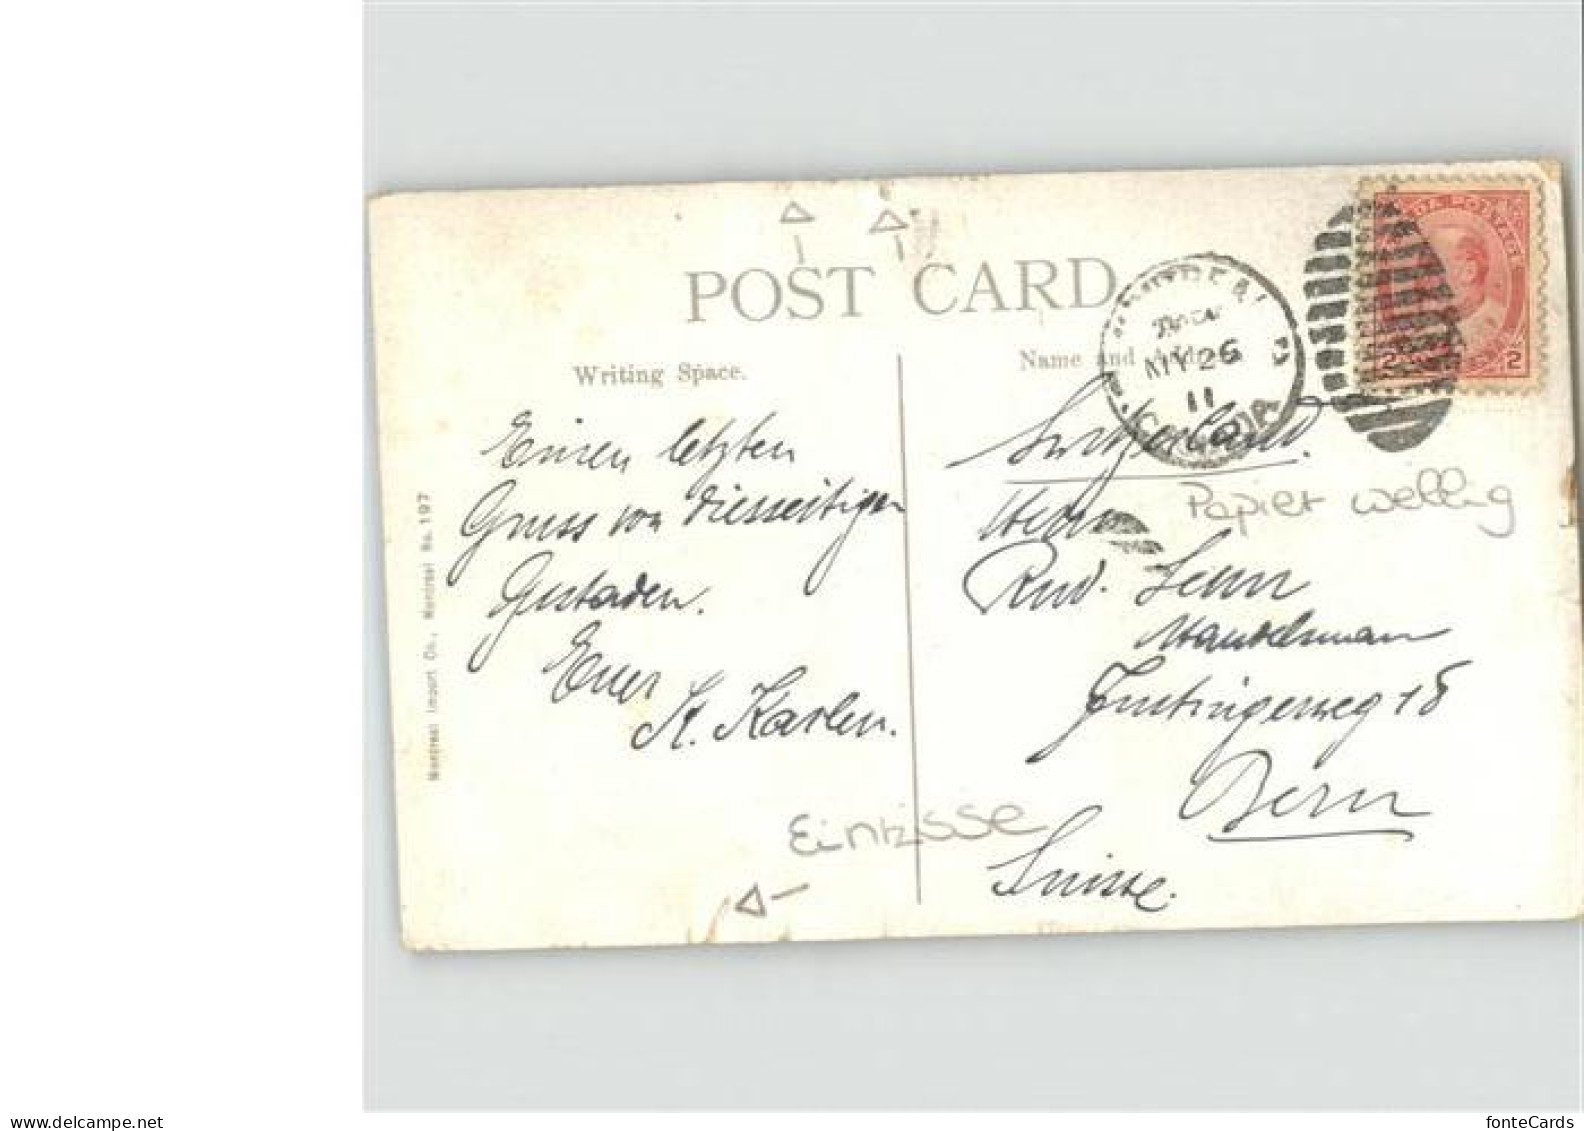 POST CARD
Writing Space.
Name and Address
Einen letzten
Gruss von diesseitigen
Gestaden.
Euer
K. Karlen.
Montreal Import Co., Montreal No. 197
MONTREAL
MY 26
11
CANADA
POSTAGE
2 2
Switzerland.
Herrn
Rud. Senn
Handelsmann
Papier wellig
Bern
Suisse.
Einrisse
www.delcampe.net
fonteCards